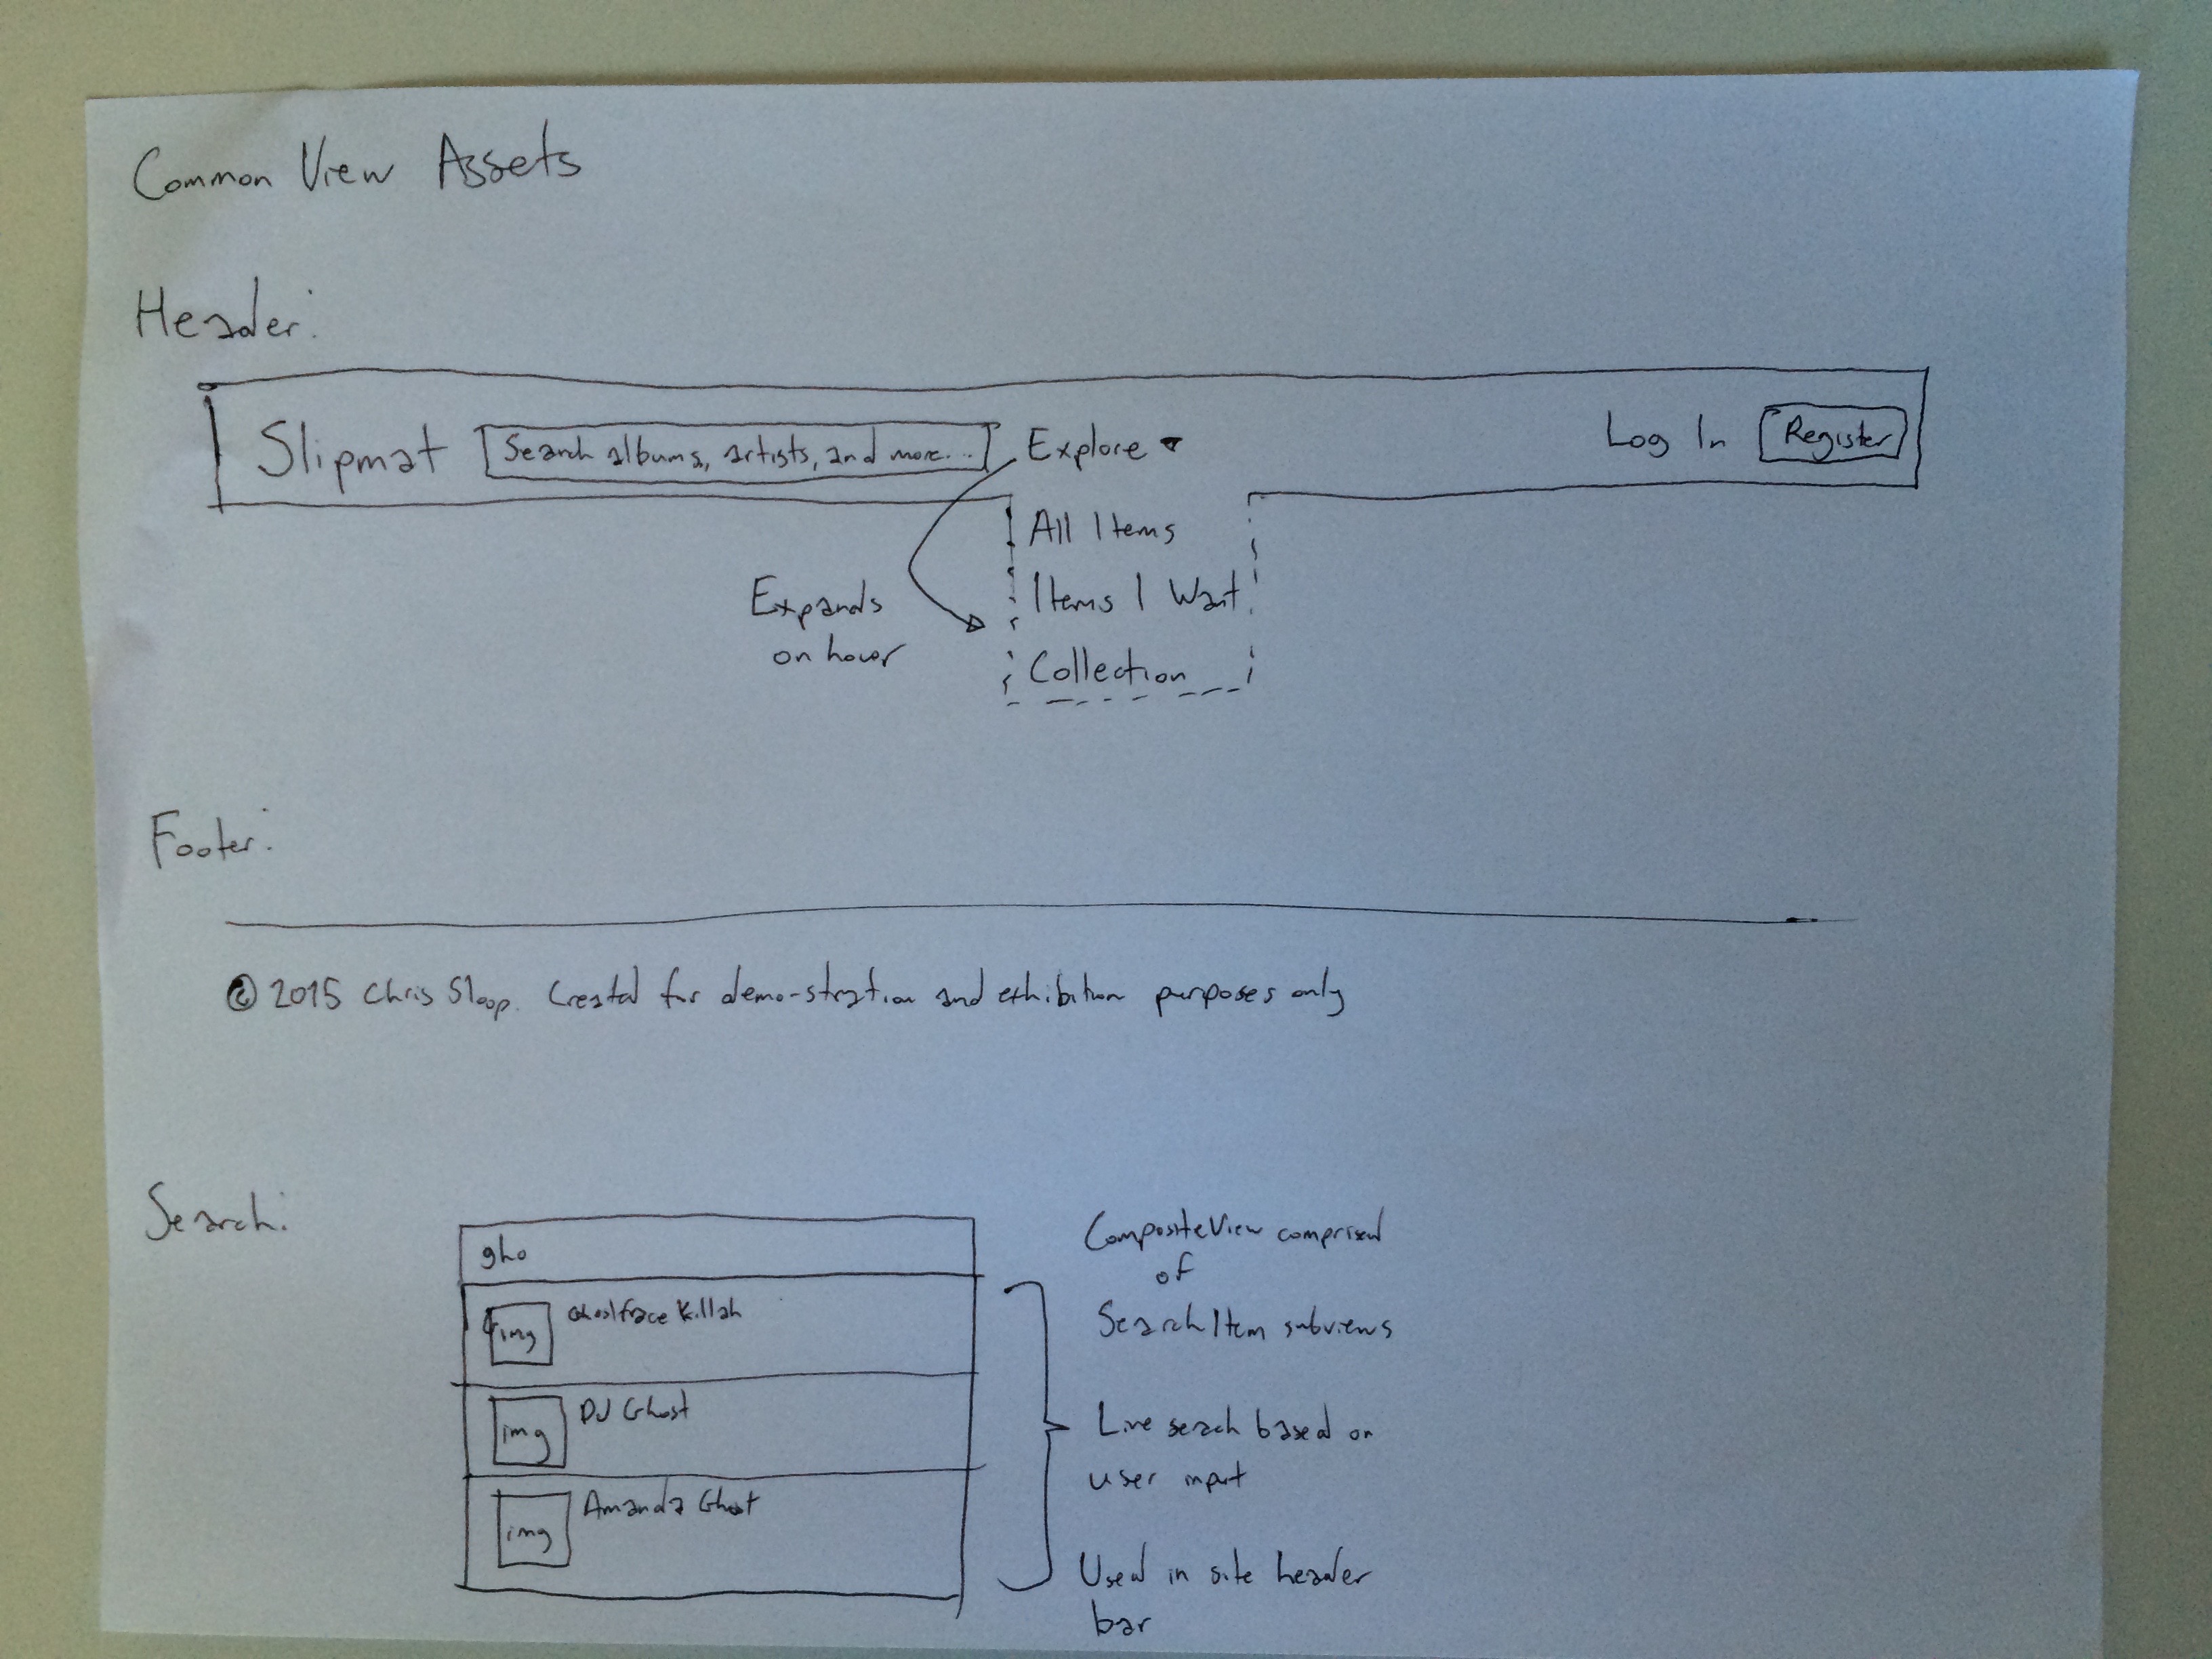 Common View Assets
Header:
Slipmat Search albums, artists, and more... Explore ▾ Log In Register
All Items
Items I Want
Collection
Expands
on hover
Footer:
© 2015 Chris Sloop. Created for demo-stration and exhibition purposes only
Search:
gho
img Ghostface Killah
img DJ Ghost
img Amanda Ghost
CompositeView comprised
of
SearchItem subviews
Live search based on
user input
Used in site header
bar